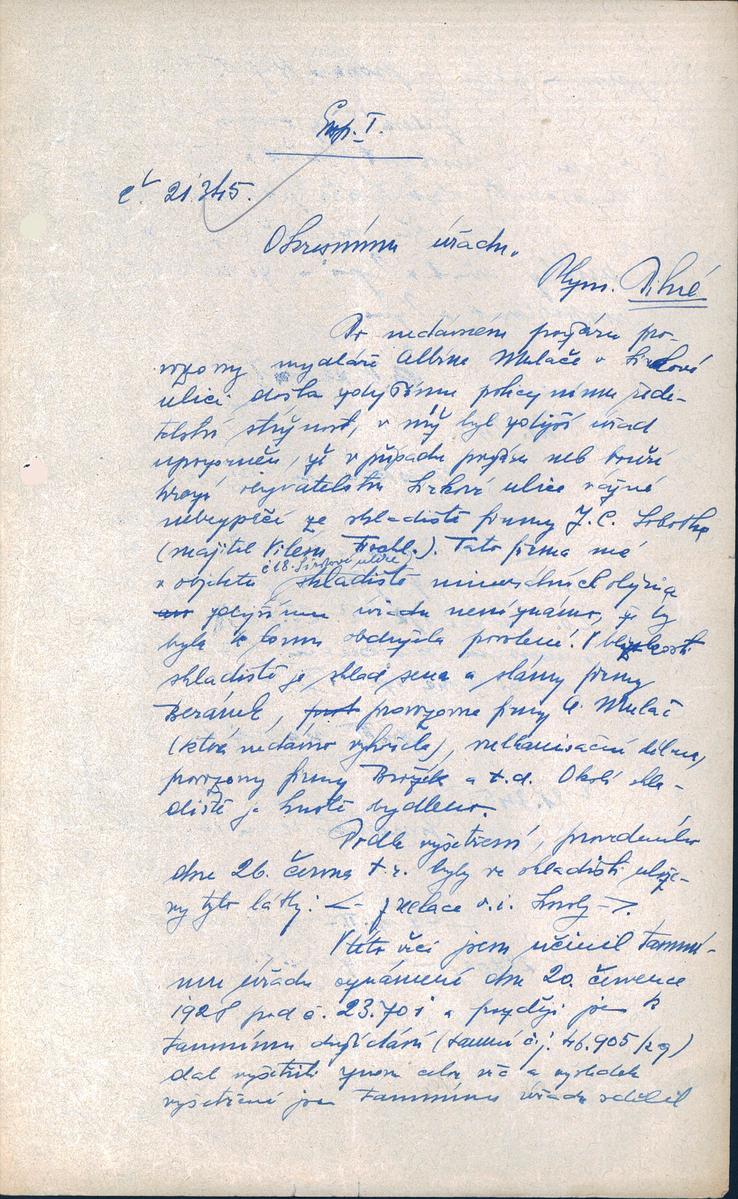 Exp. I.
č. 21.345.
Okresnímu úřadu.
Plzni.
Po nedávném požáru pro-
vozovny mydláře Albína Muláče v
ulici došla zdejšímu policejnímu ředi-
telství stížnost, v níž byl zdejší úřad
upozorněn, že v případu požáru neb
hrozí obyvatelstvu Sirkové ulice vážné
nebezpečí ze skladiště firmy J. C. Sobotka
(majitel Vilém Fischl.). Tato firma má
v objektu č 18. Sirkové ulice skladiště minerálních olejů a
zdejšímu úřadu není známo, že by
byla k tomu obdržela povolení. V blízkosti
skladiště je sklad sena a slámy firmy
Beránek, provozovna firmy A. Muláč
(která nedávno vyhořela), mechanisační dílna,
provozovny firmy Brožík a t.d. Okolí skla-
diště je hustě bydleno.
Podle vyšetření, provedeného
dne 26. června t.r. byly ve skladišti ulože-
ny tyto látky: <- z relace v.i. ->.
V této věci jsem učinil tamní-
mu úřadu oznámení dne 20. července
1928 pod č. 23.701 a později jsem k
tamnímu dožádání (tamní č.j. 46.905/29)
dal vyšetřiti znovu celou věc a výsledek
vyšetření jsem tamnímu úřadu sdělil